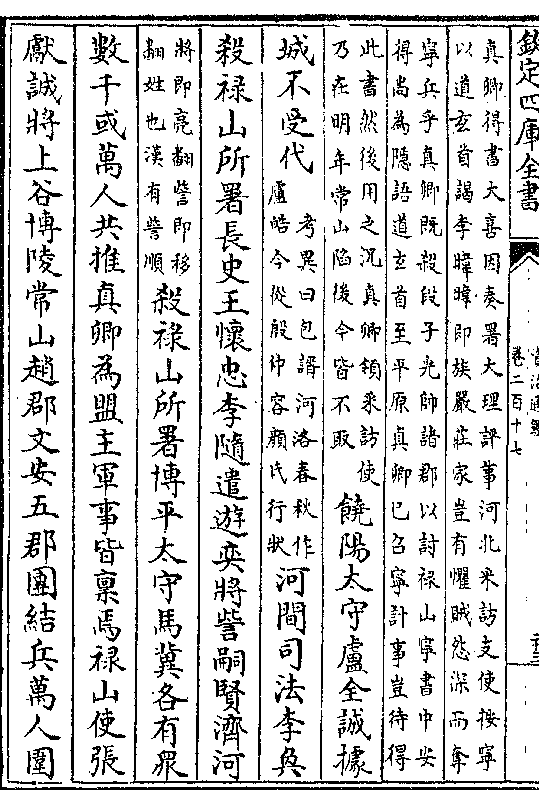 欽定四庫全書
卷二百十七
真卿得書大喜因奏署大理評事河北采訪支使按寧
以道玄首謁李暐暐即族嚴莊家豈有懼賊怨深而奪
寧兵乎真卿既殺段子光師諸郡以討祿山寧書中安
得尚為隱語道玄首至平原真卿已召寧計事豈待得
此書然後用之况真卿領采訪使
乃在明年常山陷後今皆不取
饒陽太守盧全誠據
城不受代
考異曰包諝河洛春秋作
盧皓今從殷仲容顏氏行狀
河間司法李奐
殺祿山所署長史王懷忠李隨遣遊奕將訾嗣賢濟河
將即亮翻訾即移
翻姓也漢有訾順
殺祿山所署博平太守馬冀各有眾
數千或萬人共推真卿為盟主軍事皆稟焉祿山使張
獻誠將上谷博陵常山趙郡文安五郡團結兵萬人圍